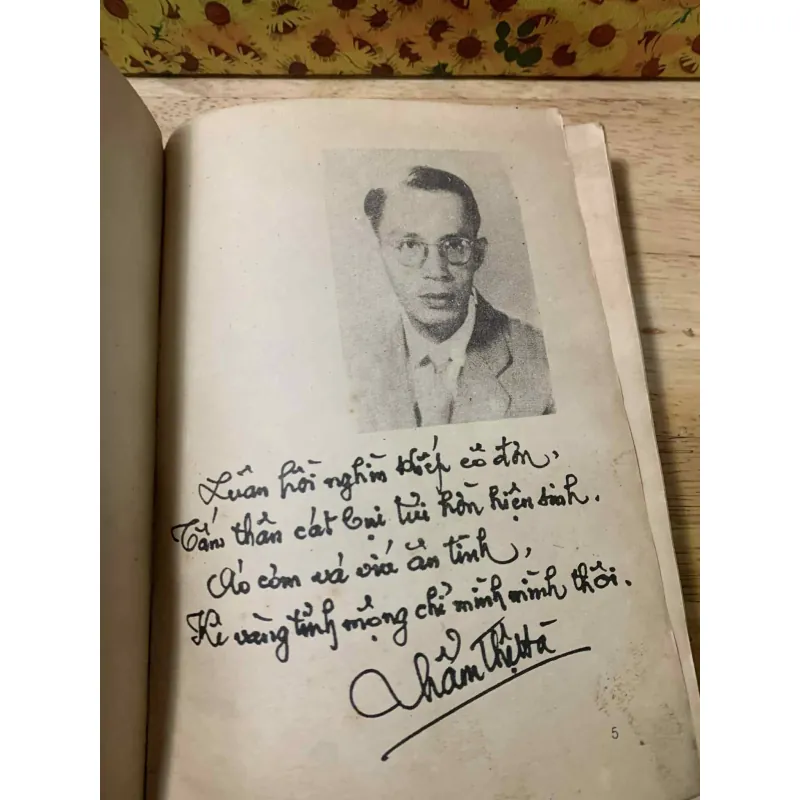 Luân hồi nghìn kiếp cô đơn,
Tấm thân cát bụi tủi hờn hiện sinh.
Áo cơm và với ân tình,
Kê vàng tỉnh mộng chỉ mình mình thôi.
Thẩm Thệ Hà
5